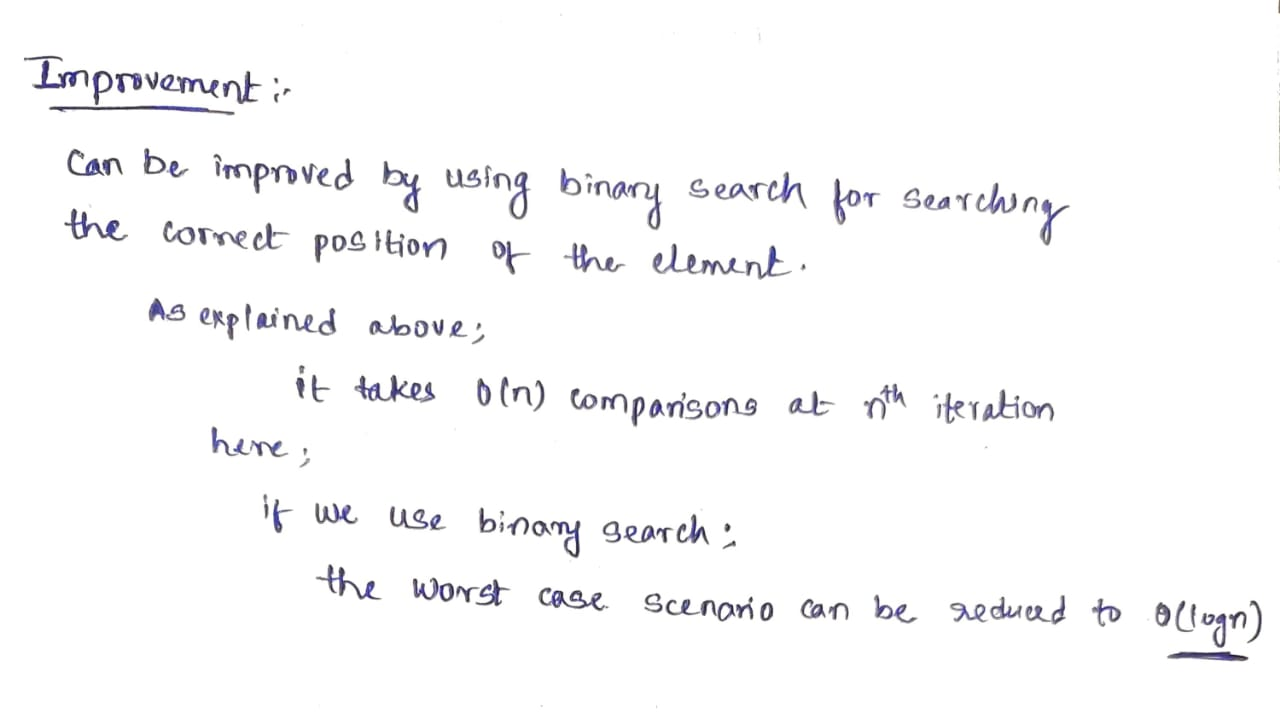 Improvement :-
Can be improved by using binary search for searching
the correct position of the element.
As explained above;
it takes O(n) comparisons at nth iteration
here;
if we use binary search:
the worst case scenario can be reduced to O(logn)